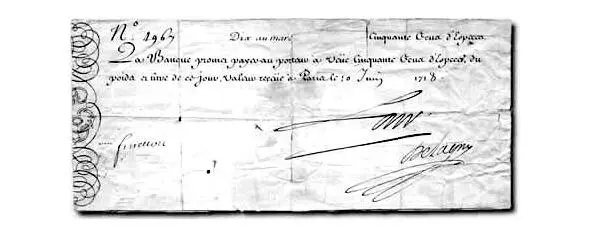 N.º 496 Dix au marc Cinquante Ecus d'Especes.
La Banque promet payer au porteur a Veüe Cinquante Ecus d'Especes, du
poids et titre de ce jour, valeur receüe a Paris le 10 Juin 1718.
Delagny